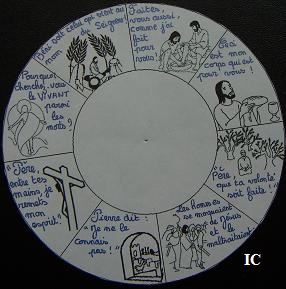 Béni soit celui qui vient au
nom du Seigneur!
Faites,
vous aussi,
comme j'ai
fait
pour
vous!
Ceci
est mon
corps qui est
pour vous!
Père,
que ta volonté
soit faite!
Les hommes
se moquaient
de Jésus
et le
maltraitaient.
Pierre dit:
"Je ne le
connais
pas!"
"Père,
entre tes
mains, je
remets
mon
esprit".
Pourquoi
cherchez-vous
le VIVANT
parmi
les
morts?
IC